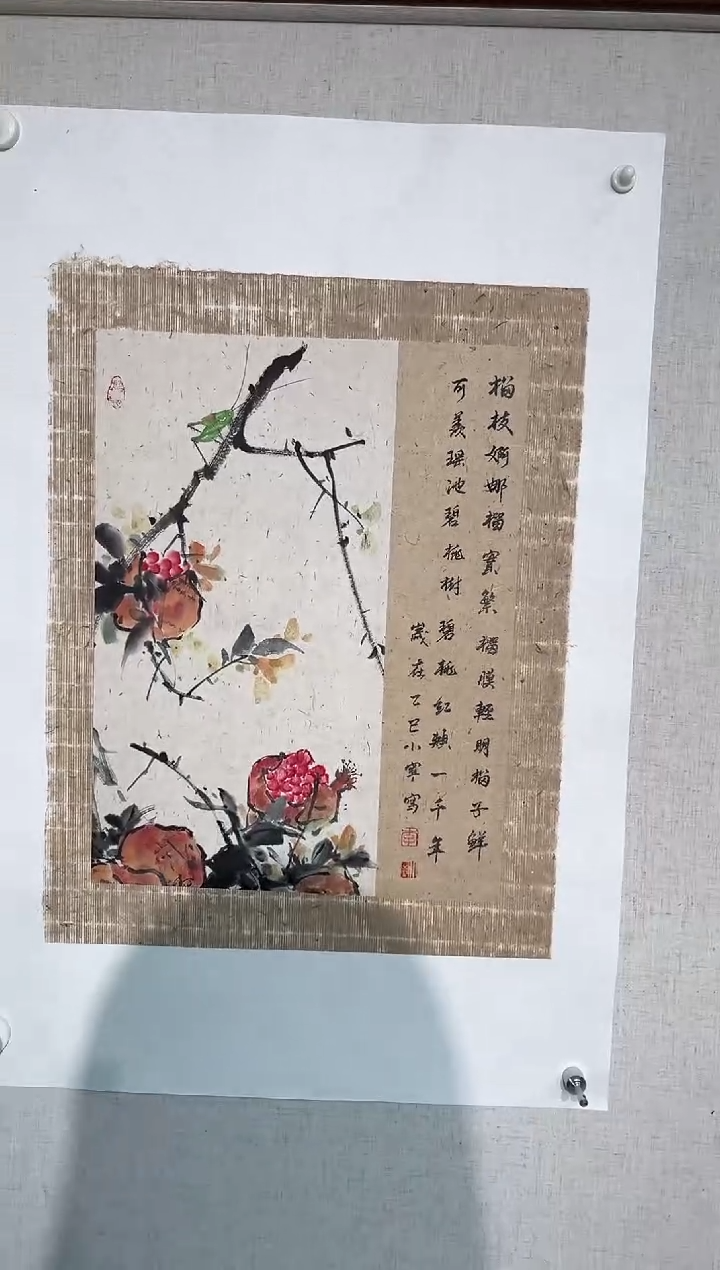 榴枝婀娜榴實繁榴膜輕明榴子鮮
可羨瑤池碧桃樹碧桃紅頰一千年
歲在乙巳小寧寫